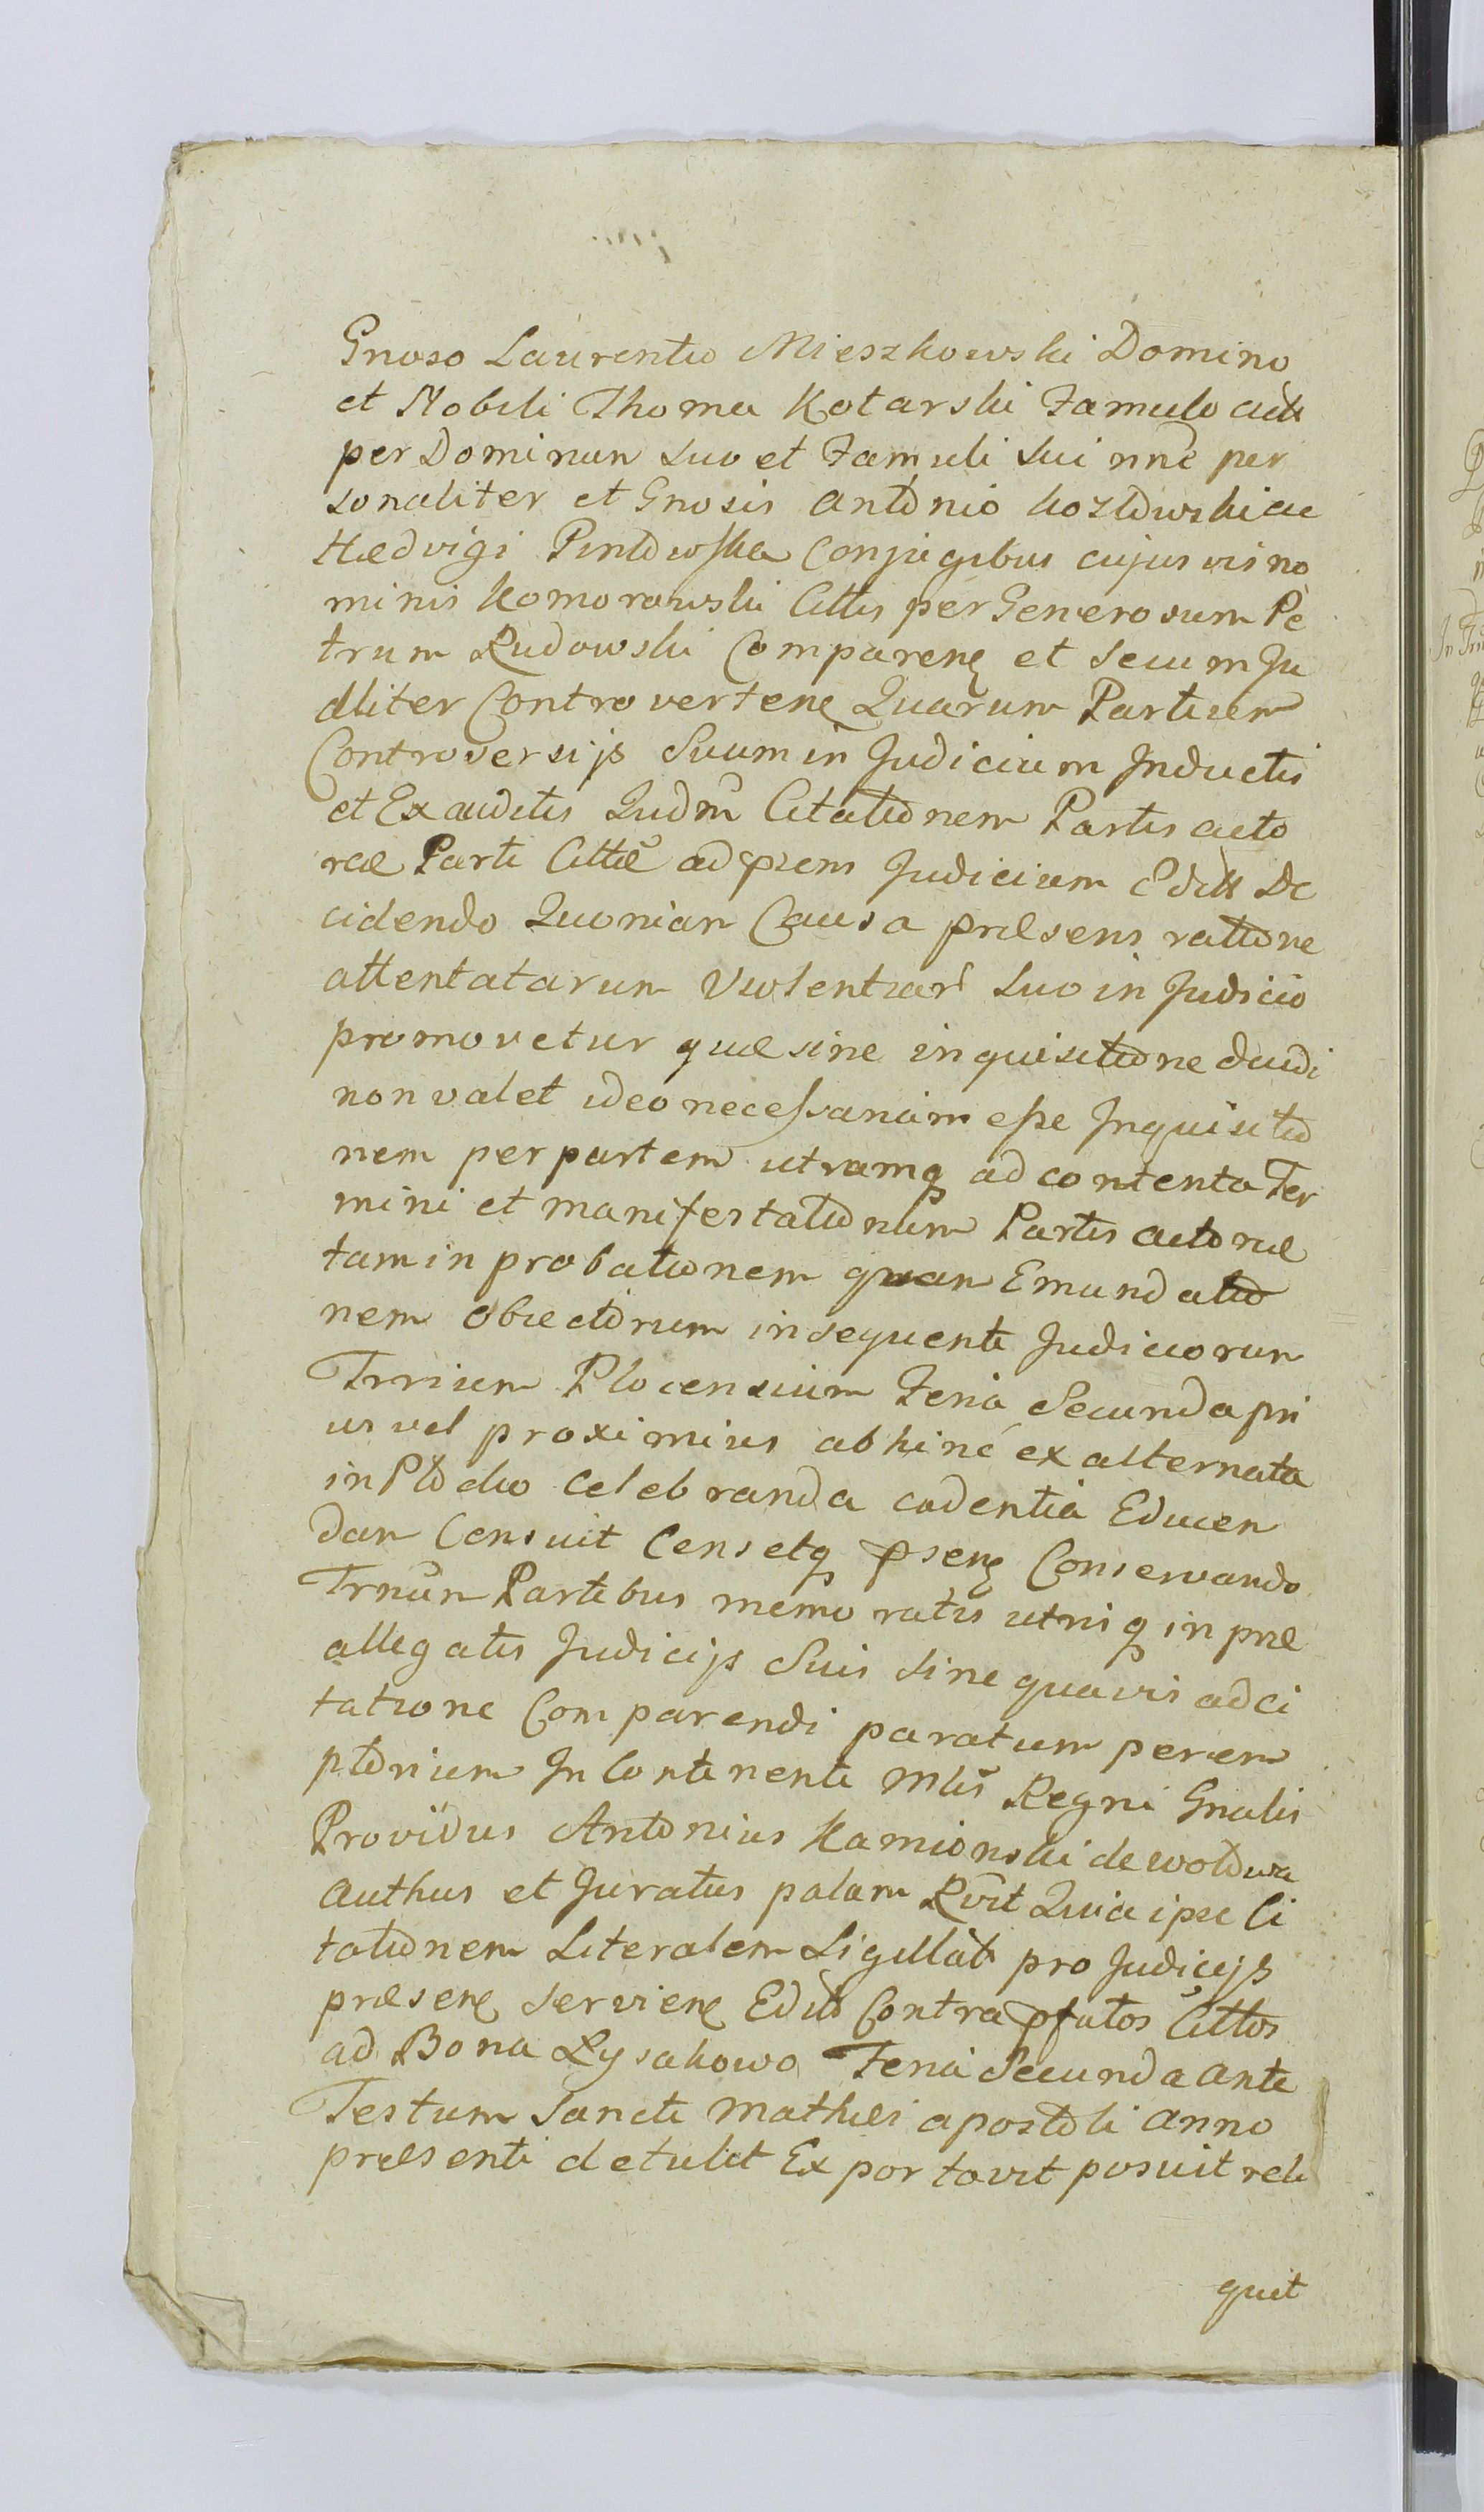 Gnoso Laurentio Mieszkowski Domino
et Nobili Thoma Kotarski Famulo actt
per Dominum suo et Famuli sui nnē per
sonaliter et Gnosis Antonio Kozłowski ac
Hædvigi Conjugibus cujusvis no
minis Komorowski Cittis per Generosum Pe
trum Rudowski Comparen et secum Ju
dliter Controverten Quarum Partium
Controversijs Suum in Judicium Inductis
et Exauditis Judm̄ Citationem Partis acto
ræ Parti Cittæ ad pns Judicium Editt De
cidendo Quoniam Causa præsens ratione
attentatarum Violentiar suo in Judicio
promovetur quæ sine inquisitione
non valet ideo necessariam esse Inquisitio
nem per partem utramq ad contenta Ter
mini et manifestationum Partis actoræ
tam in probationem quam Emundatio
nem obiectorum in sequente Judiciorum
Trrium Plocensium Feria Secunda pri
us vel proximius abhinc ex alternata
in Plocko Celebranda cadentia Educen
dam Censuit Censetq psen Conservando
Trnum Partibus memoratis utriq in præ
allegatis Judicijs Suis sine quavis adci
tatione Comparendi paratum perem
ptorium In Continenti Mtis Regni Gnalis
Providus Antonius Kamionski de
authus et Juratus palam Rvit Quia ipse Ci
tationem Literalem Sigillat pro Judicijs
præsen servien Edit Contra pfatos Cittos
ad Bona Łysakowo Feria Secunda ante
Festum Sancti Mathæi apostoli anno
præsenti detulit Exportavit posuit reli
quit